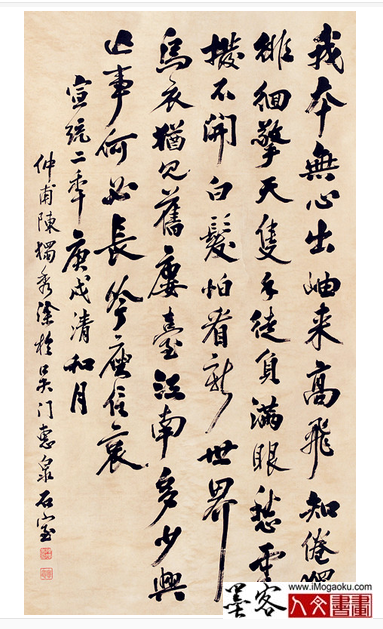 我本無心出岫来高飛知倦獨
徘徊擎天隻手徒負滿眼愁雲
撥不開白髮怕看新世界
烏衣猶見舊樓臺江南多少興
亡事何必長吟庾信哀
宣統二年庚戌清和月
仲甫陳獨秀塗於吴门惠泉石室
墨客
www.iMogaoku.com
人文書畫